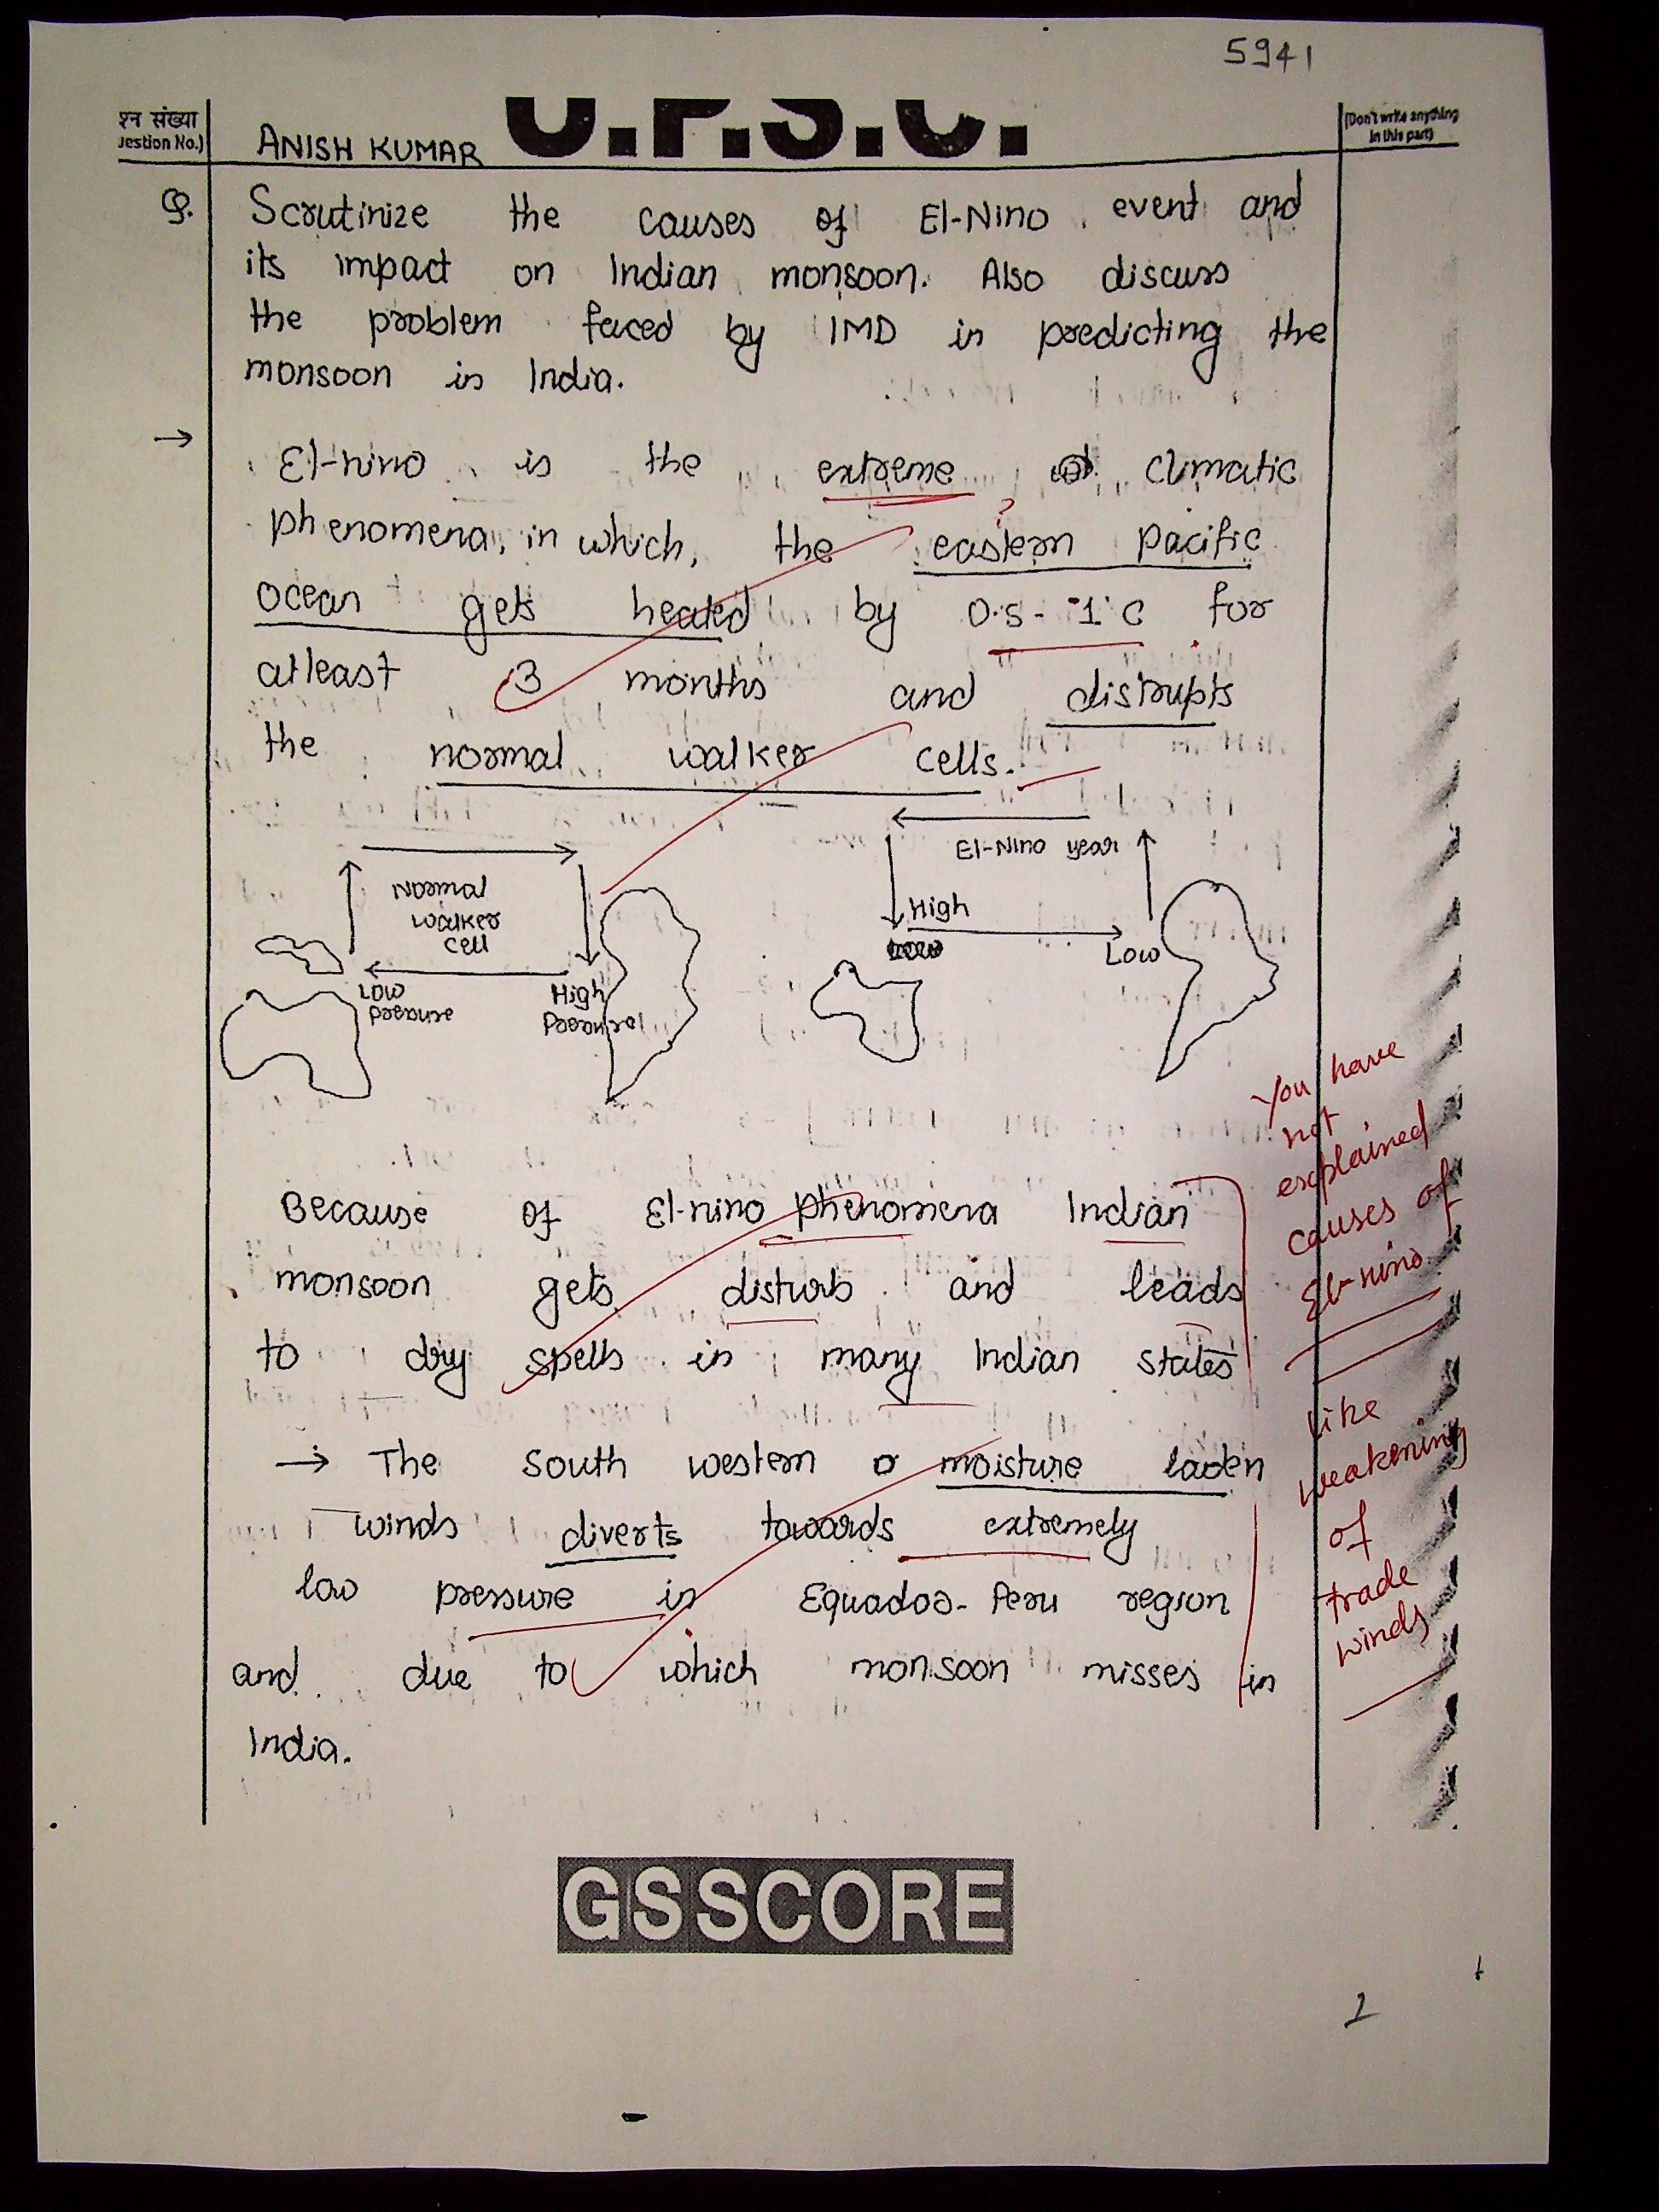 5941
श्न संख्या
uestion No.)
ANISH KUMAR
U.P.S.C.
(Don't write anything
in this part)
Q. Scrutinize the causes of El-Nino event and
its impact on Indian monsoon. Also discuss
the problem faced by IMD in predicting the
monsoon in India.
→
El-nino is the extreme climatic
?
phenomena, in which, the eastern pacific
ocean gets heated by 0.5-1°C for
atleast 3 months and distrupts
the normal walker cells.
El-Nino year
Normal
walker
cell
High
Low
Low
pressure
High
Pressure
You have
not
explained
causes of
El-nino
Because of El-nino phenomena Indian
monsoon gets disturb and leads
to dry spells in many Indian states
like
weakening
of
trade
winds
→ The south western moisture laden
winds diverts towards extremely
low pressure in Equador-Peru region
and due to which monsoon misses in
India.
GSSCORE
1